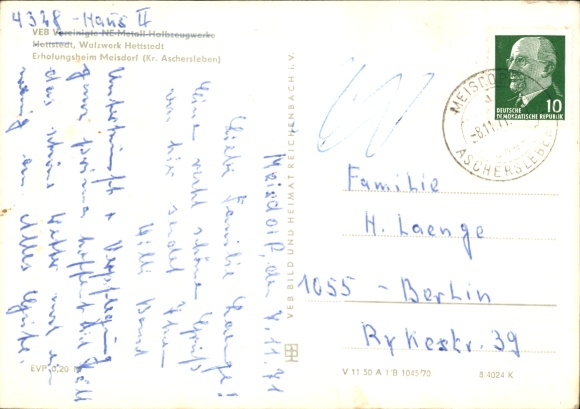 4328 - Haus II
VEB Vereinigte NE-Metall-Halbzeugwerke
Hettstedt, Walzwerk Hettstedt
Erholungsheim Meisdorf (Kr. Aschersleben)
Meisdorf, den 7.11.71
Liebe Familie Laenge!
Eine recht schöne Grüße
von hier sendet Ihnen
Willi
Unterkunft + Verpflegung
ganz prima hoffentlich hält
das schöne Wetter noch ein
wenig an. Alles Gute.
EVP 0,20 M
VEB BILD UND HEIMAT REICHENBACH I. V.
MEISDORF
-8.11.71
ASCHERSLEBEN
10
DEUTSCHE
DEMOKRATISCHE REPUBLIK
Familie
H. Laenge
1055 - Berlin
Rykestr. 39
V 11 50 A 1 B 1045/70
S 4024 K